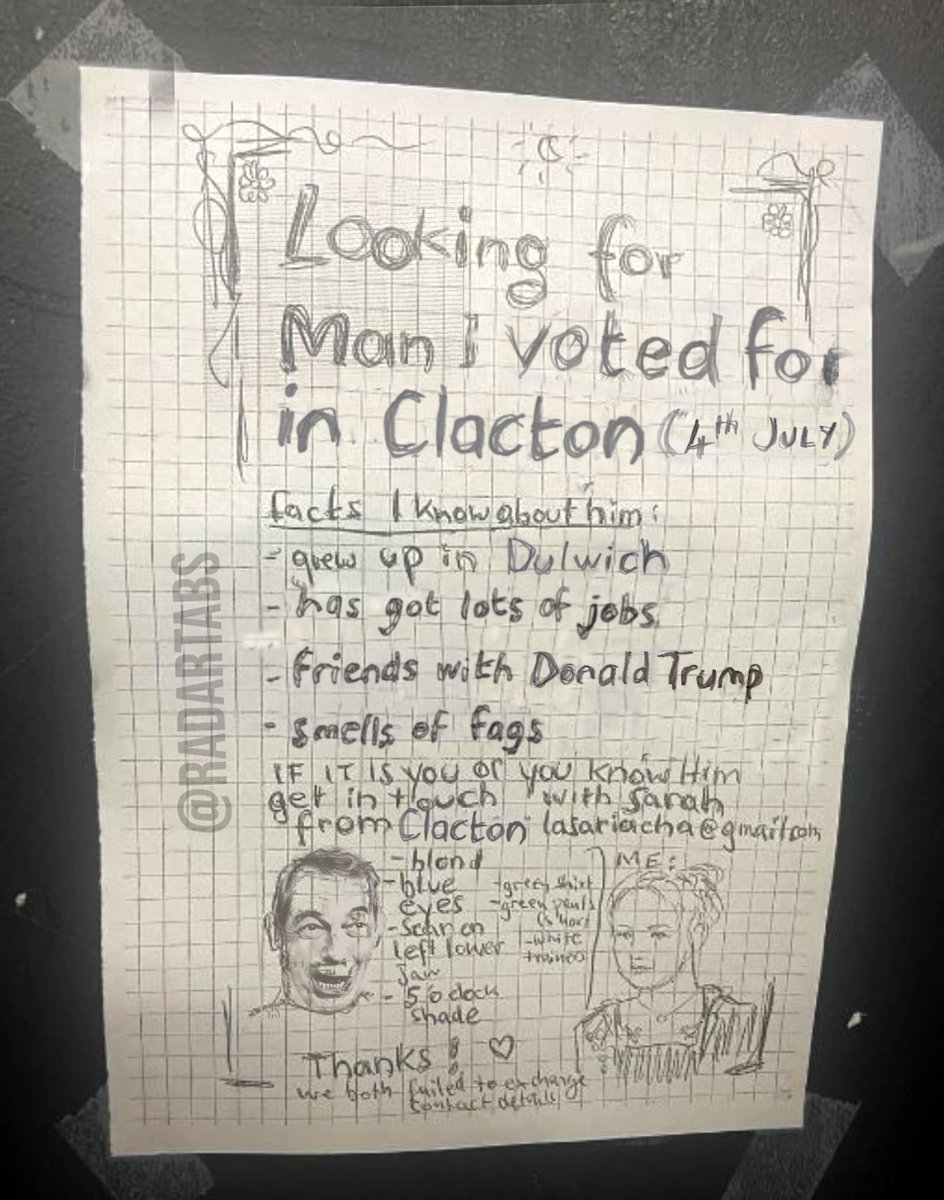 Looking for
Man I voted for
in Clacton (4th JULY)
facts I know about him:
- grew up in Dulwich
- has got lots of jobs
- friends with Donald Trump
- smells of fags
IF IT IS you or you know Him
get in touch with Sarah
from Clacton lasariacha@gmail.com
- blond
- blue
eyes
- scar on
left lower
jaw
- 5 o'clock
shade
- green shirt
- green pants
(short)
- white
trainers
ME:
Thanks!
we both failed to exchange
contact details
@RADARTABS